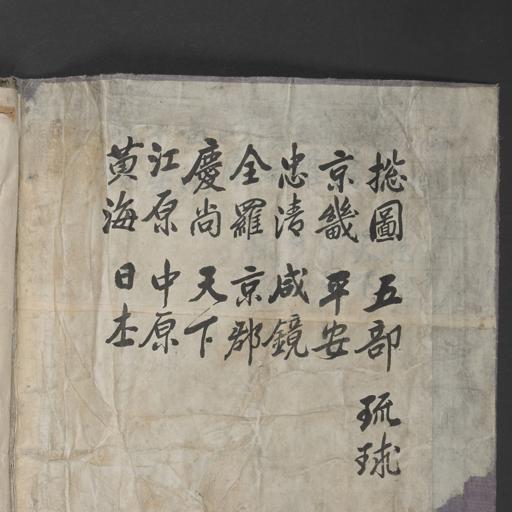 捴圖 五部 琉球
京畿 平安
忠清 咸鏡
全羅 京都
慶尚 天下
江原 中原
黄海 日本